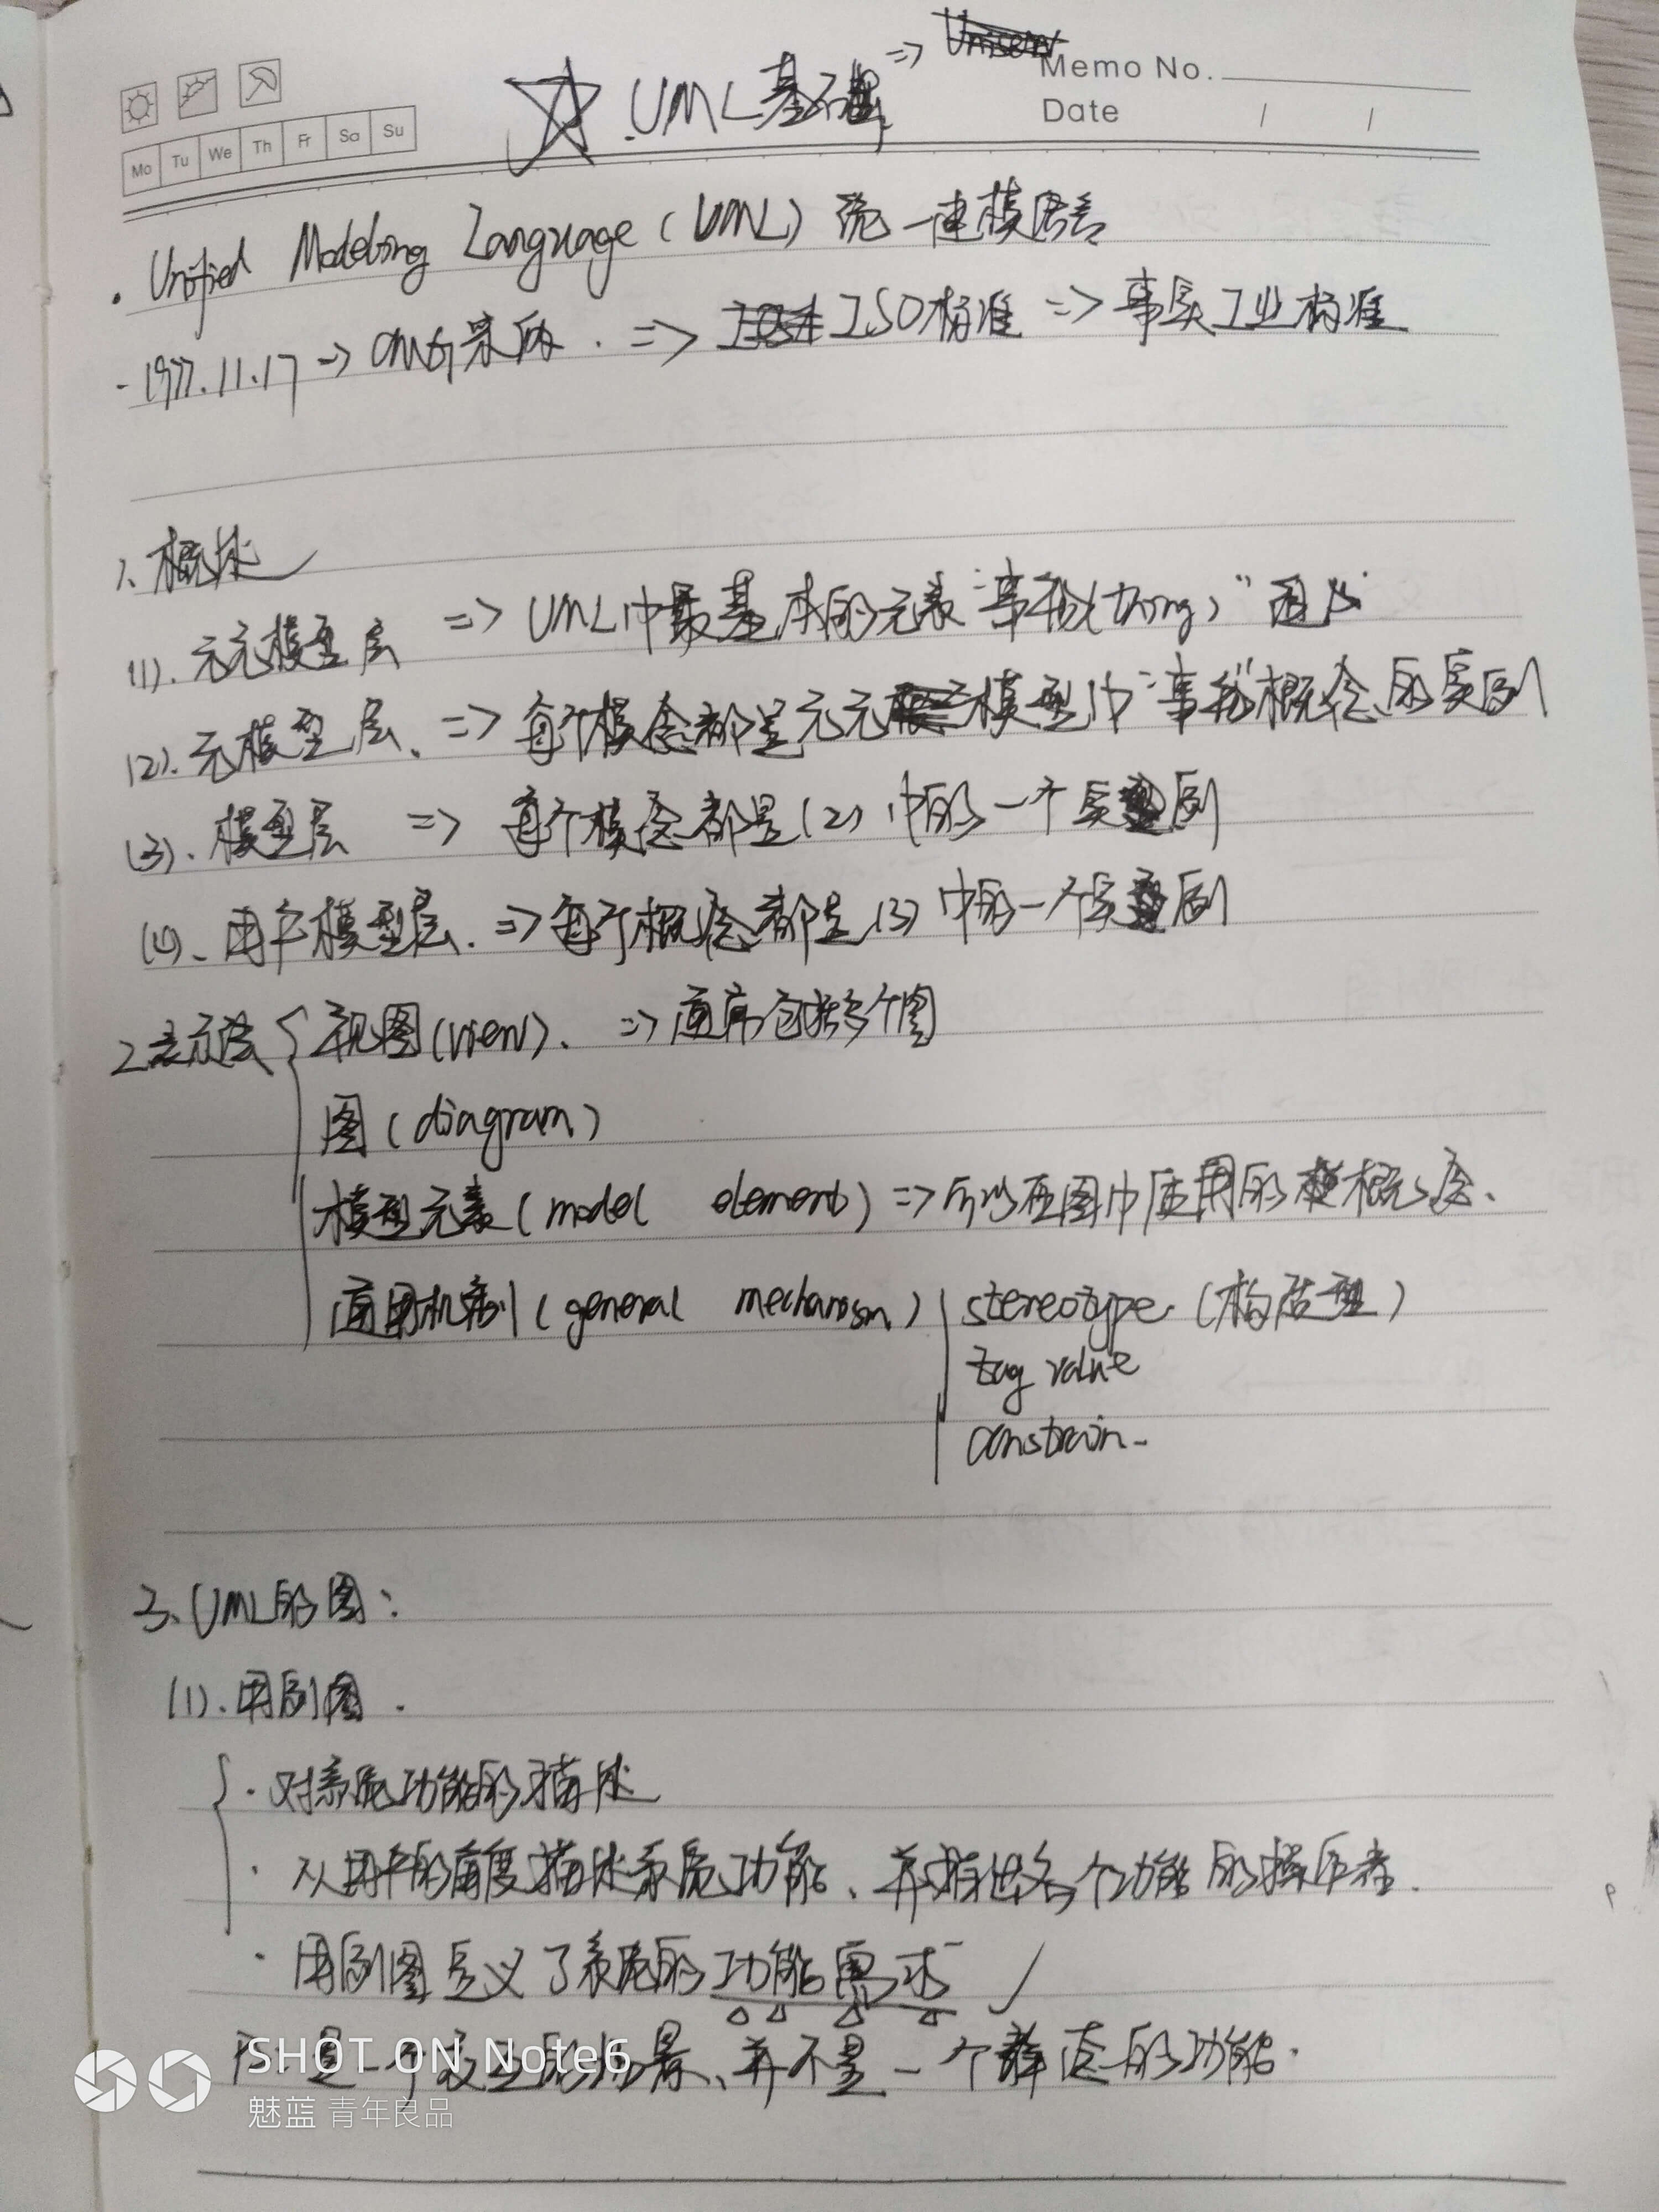 Memo No.
Date / /
Mo Tu We Th Fr Sa Su
☆ UML基础 =>
· Unified Modeling Language (UML) 统一建模语言
- 1997.11.17 => OMG采纳. => ISO标准 => 事实工业标准
1、概述
(1). 元元模型层 => UML中最基本的元素“事物(thing)”
(2). 元模型层、=> 每个概念都是元元模型中“事物”概念的实例
(3). 模型层 => 每个概念都是(2)中的一个实例
(4)、用户模型层. => 每个概念都是(3)中的一个实例
2表示法 { 视图(view)、 => 通常包括多个图
图(diagram)
模型元素(model element) => 所以在图中使用的概念、
通用机制(general mechanism) stereotype (构造型)
tag value
constrain-
3、UML的图:
(1). 用例图.
· 对系统功能的描述
· 从用户的角度描述系统功能、并指出各个功能的操作者.
· 用例图定义了系统的功能需求 ✓
是一个 的场景、并不是一个 的功能.
SHOT ON Note6
魅蓝 青年良品